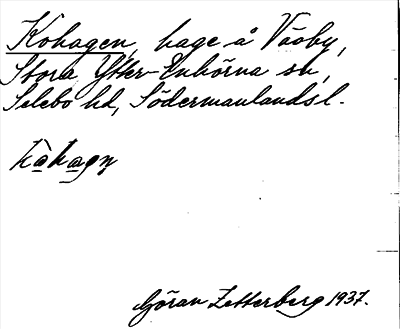 Kohagen, hage å Väsby,
Stora Ytter-Enhörna sn,
Selebo hd, Södermanlandsl.
kòhagen
Göran Zetterberg 1937.